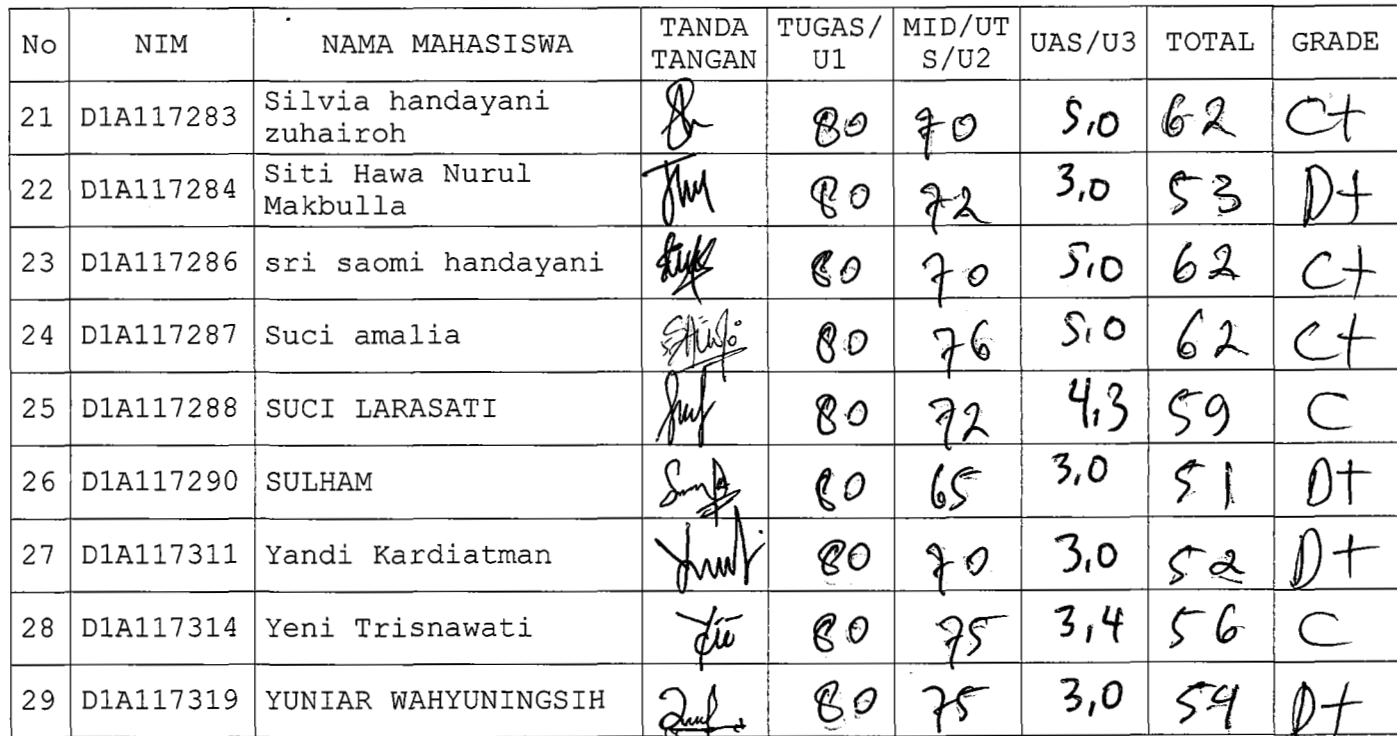 No NIM NAMA MAHASISWA TANDA TANGAN TUGAS/ U1 MID/UT S/U2 UAS/U3 TOTAL GRADE
21 D1A117283 Silvia handayani zuhairoh 80 70 5,0 62 C+
22 D1A117284 Siti Hawa Nurul Makbulla 80 72 3,0 53 D+
23 D1A117286 sri saomi handayani 80 70 5,0 62 C+
24 D1A117287 Suci amalia 80 76 5,0 62 C+
25 D1A117288 SUCI LARASATI 80 72 4,3 59 C
26 D1A117290 SULHAM 80 65 3,0 51 D+
27 D1A117311 Yandi Kardiatman 80 70 3,0 52 D+
28 D1A117314 Yeni Trisnawati 80 75 3,4 56 C
29 D1A117319 YUNIAR WAHYUNINGSIH 80 75 3,0 54 D+